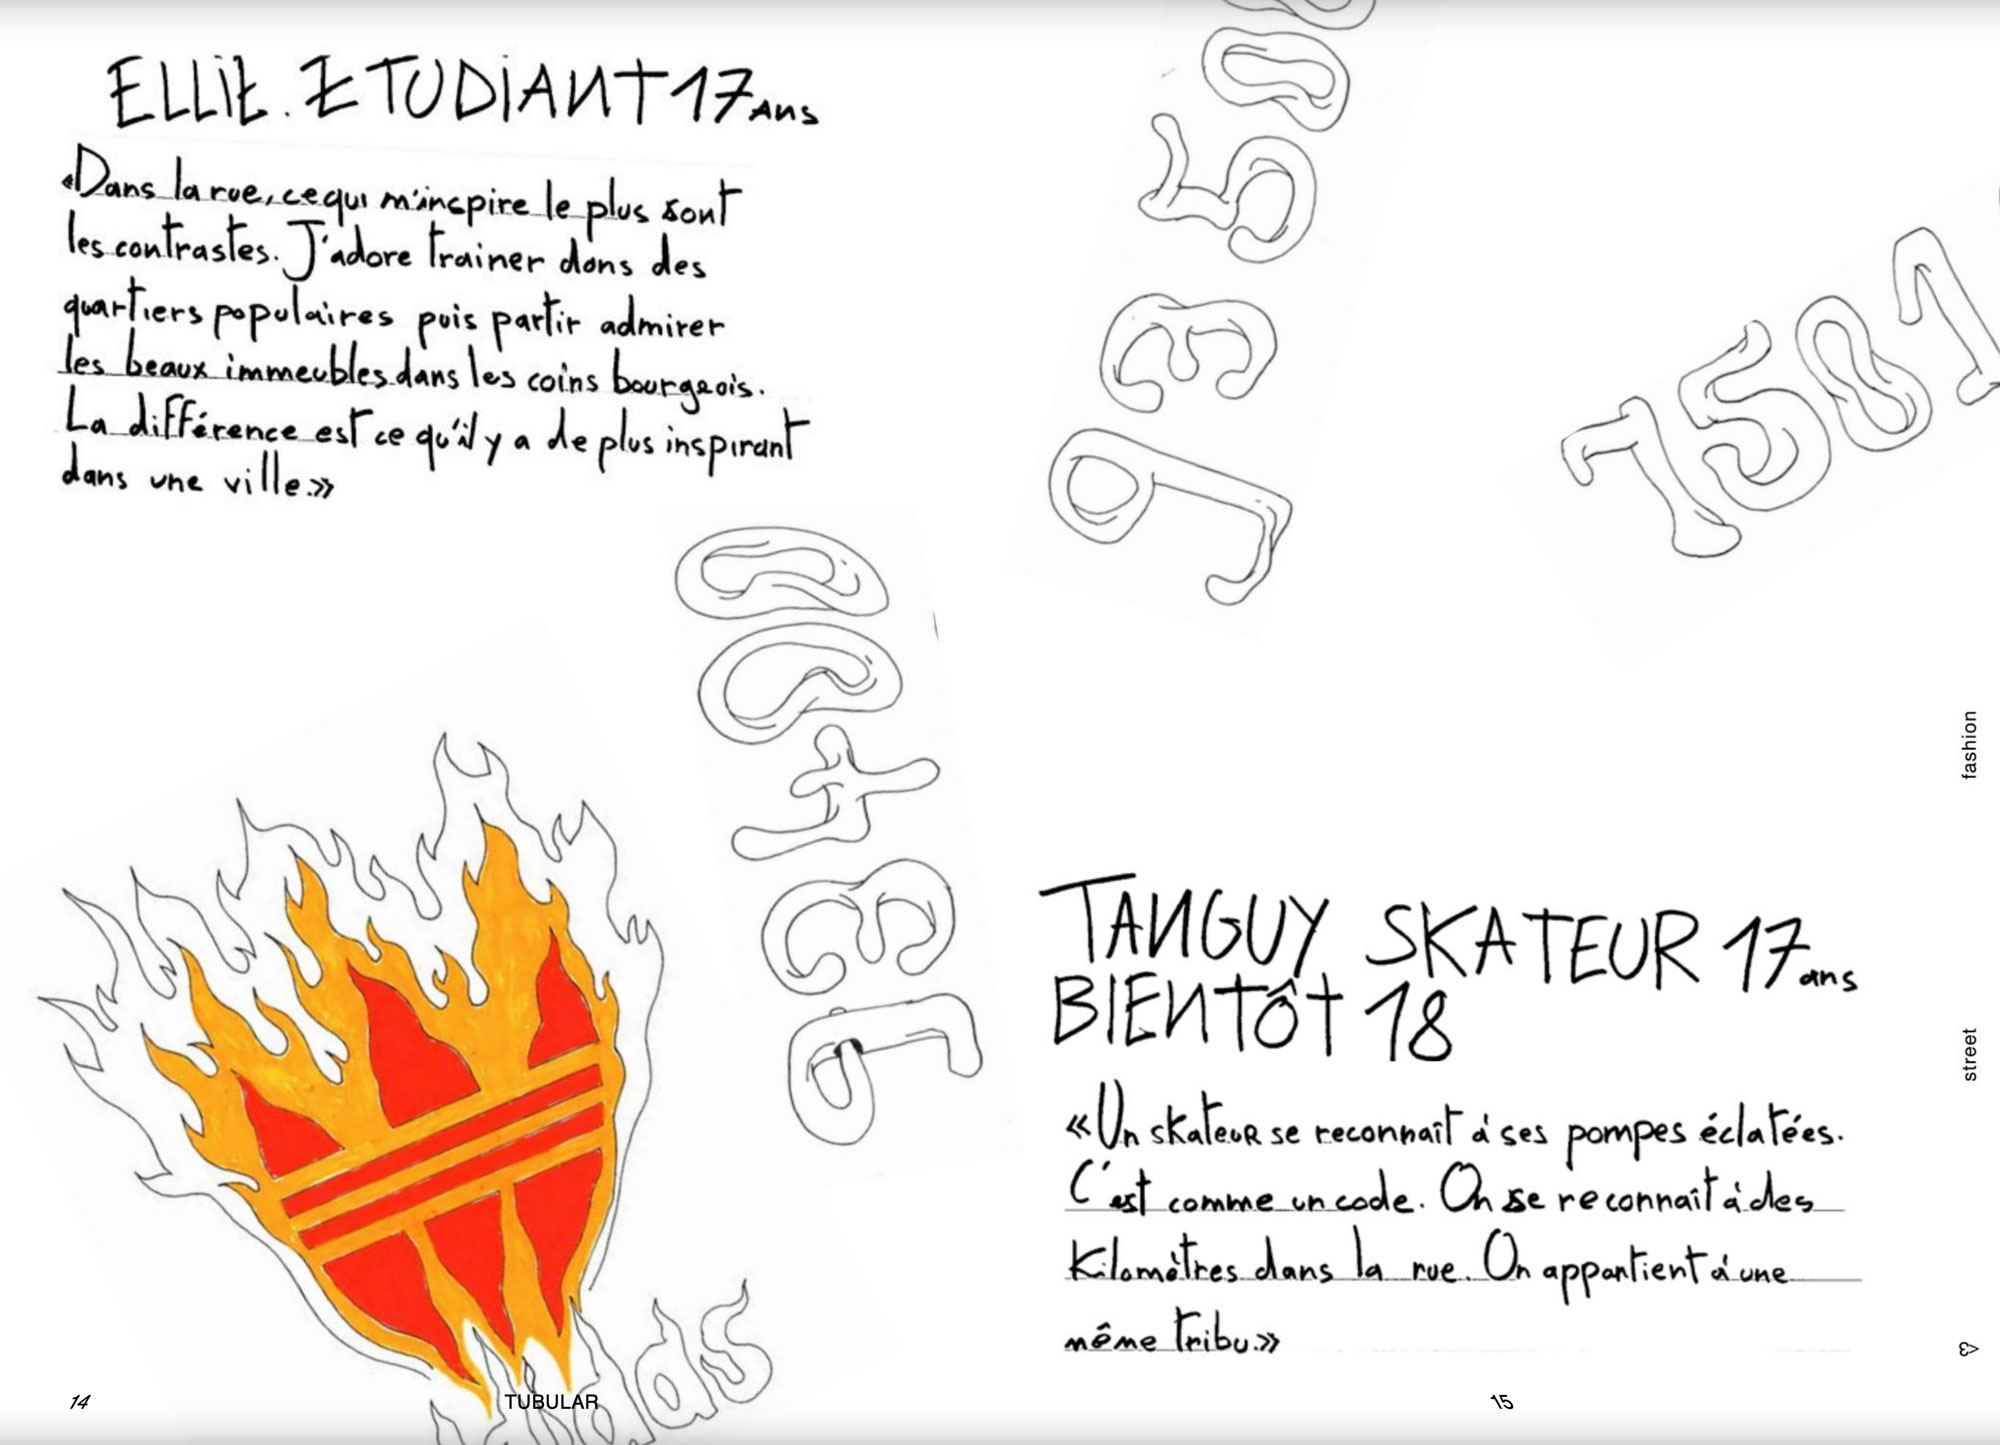 ELLIE. ETUDIANT 17 ANS
«Dans la rue, ce qui m'inspire le plus sont
les contrastes. J'adore trainer dans des
quartiers populaires puis partir admirer
les beaux immeubles dans les coins bourgeois.
La différence est ce qu'il y a de plus inspirant
dans une ville.»
93400
adidas
14
TUBULAR
93500
7501
TANGUY SKATEUR 17 ans
BIENTÔT 18
«Un skateur se reconnaît à ses pompes éclatées.
C'est comme un code. On se reconnaît à des
Kilomètres dans la rue. On appartient à une
même tribu.»
15
fashion
street